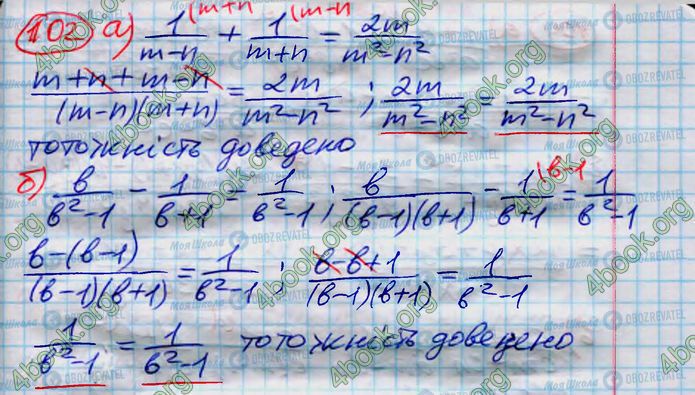 102 а) 1/(m-n) (m+n + 1/(m+n) (m-n = 2m/(m²-n²)
(m+n+m-n)/((m-n)(m+n)) = 2m/(m²-n²) ; 2m/(m²-n²) = 2m/(m²-n²)
тотожність доведено
б) в/(в²-1) - 1/(в+1) = 1/(в²-1) ; в/((в-1)(в+1)) - 1/(в+1) (в-1 = 1/(в²-1)
(в-(в-1))/((в-1)(в+1)) = 1/(в²-1) ; (в-в+1)/((в-1)(в+1)) = 1/(в²-1)
1/(в²-1) = 1/(в²-1) тотожність доведено
4book.org
Моя Школа OBOZREVATEL